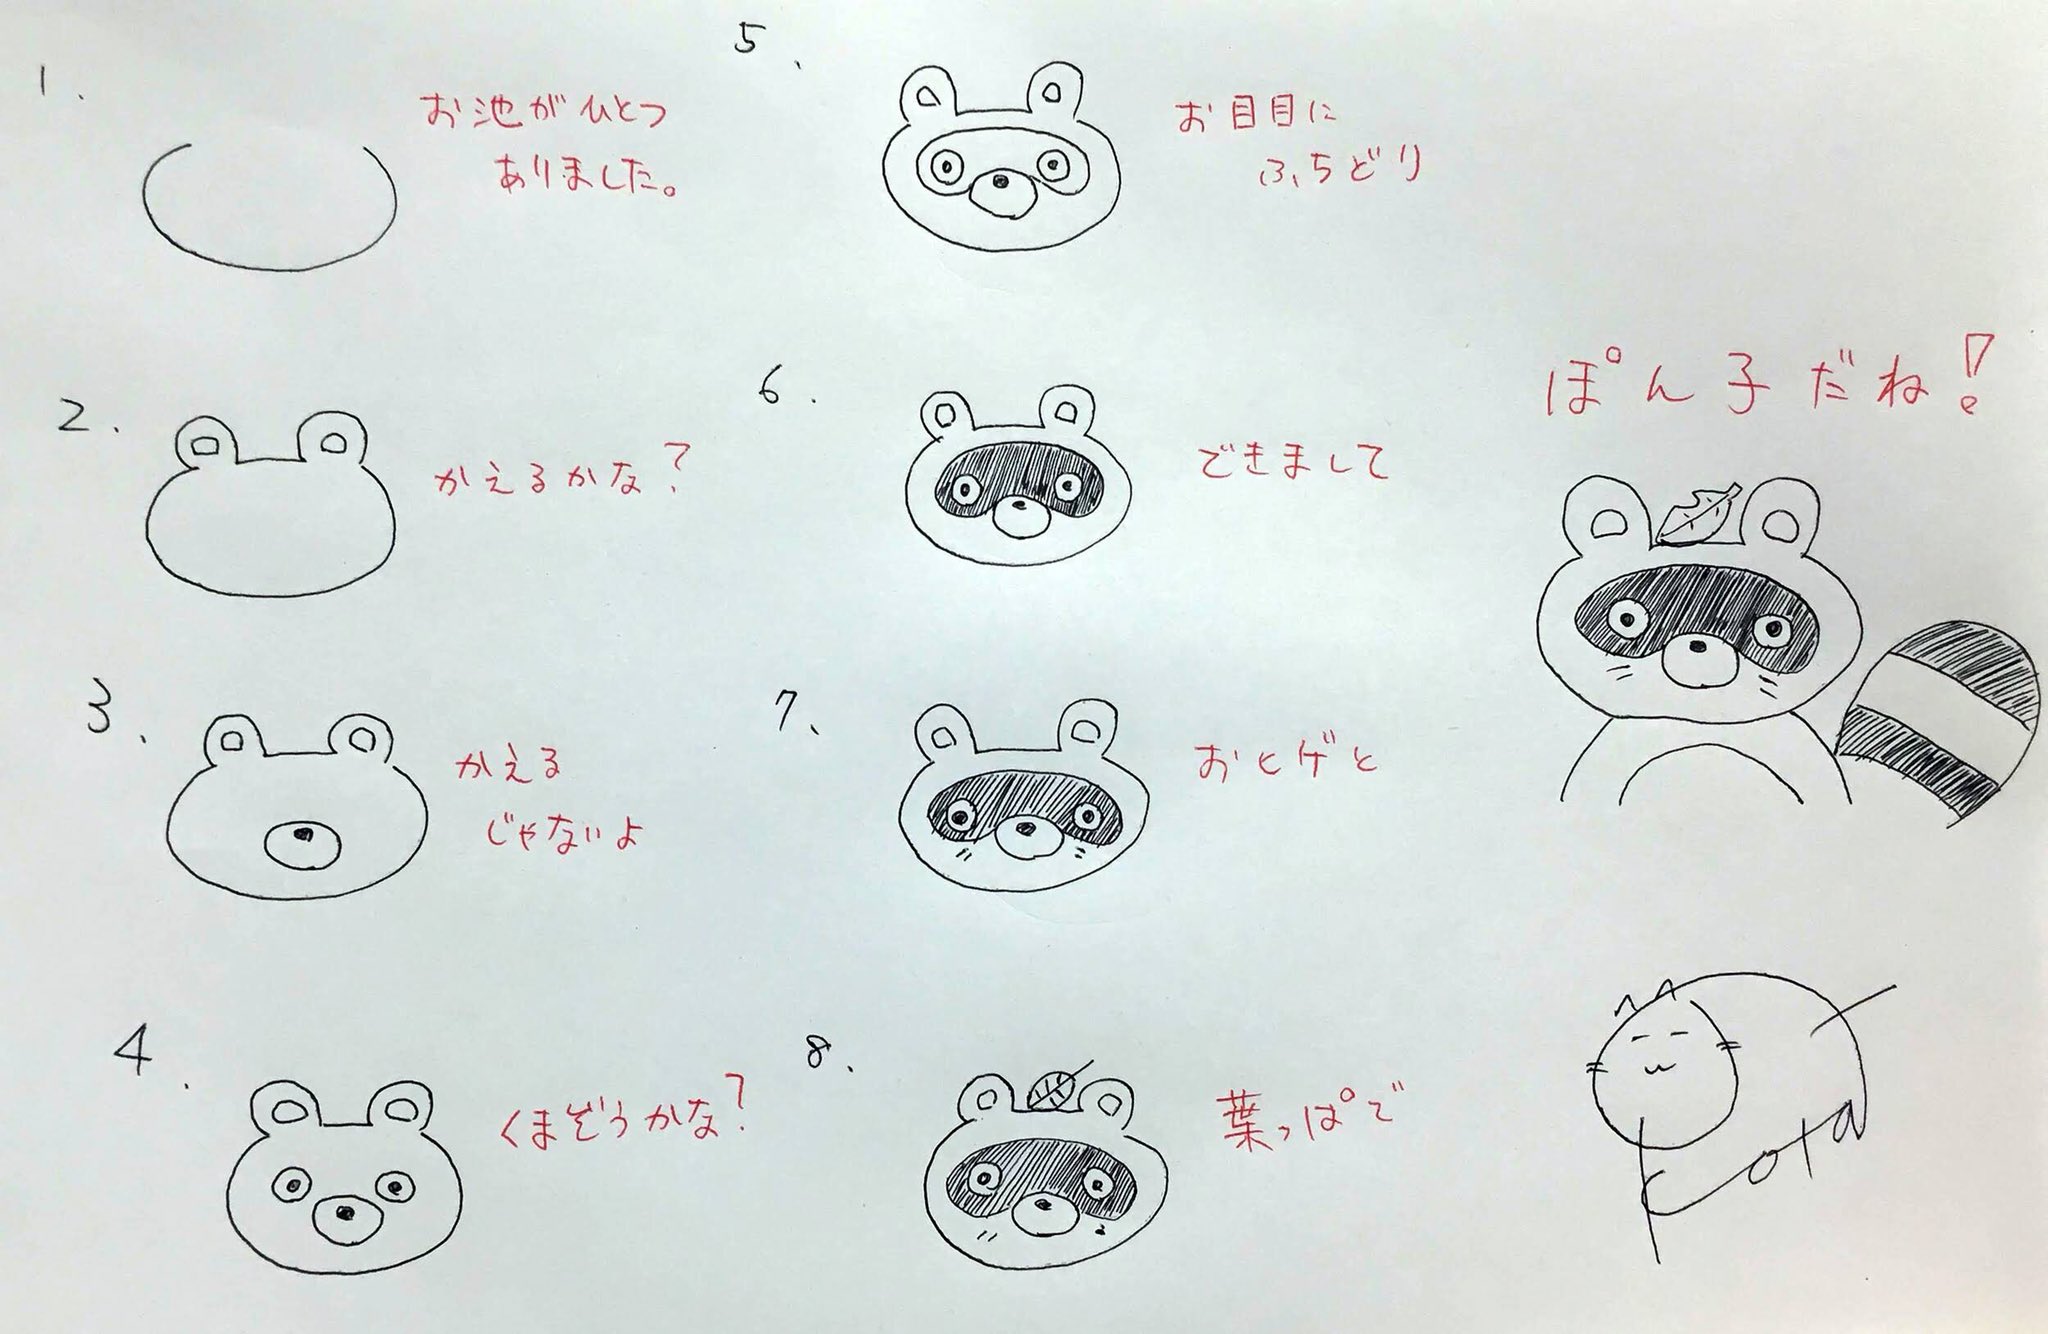 1.
お池がひとつ
ありました。
2.
かえるかな?
3.
かえる
じゃないよ
4.
くまぞうかな?
5.
お目目に
ふちどり
6.
できまして
7.
おヒゲと
8.
葉っぱで
ぽん子だね!